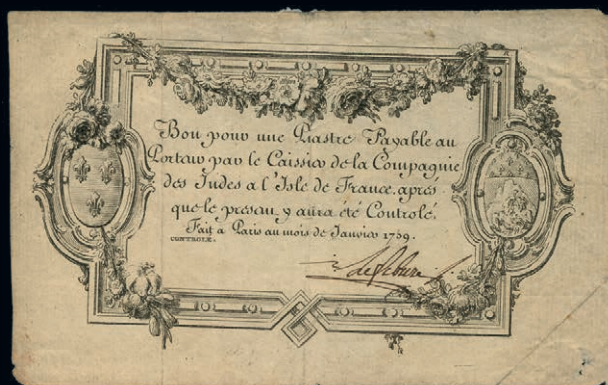 Bon pour une Piastre Payable au
Porteur par le Caissier de la Compagnie
des Indes a l'Isle de France, aprés
que le present y aura été Controlé,
Fait à Paris au mois de Janvier 1759.
CONTROLE.